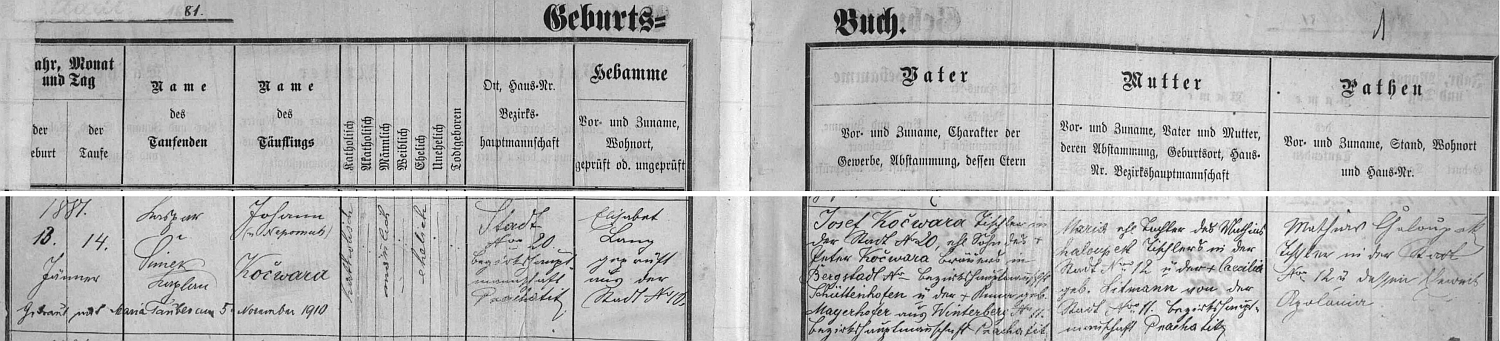 81.
Geburts=
Buch.
1
ahr, Monat
und Tag
der
eburt
der
Taufe
Name
des
Taufenden
Name
des
Täuflings
Katholisch
Akatholisch
Männlich
Weiblich
Ehelich
Unehelich
Todtgeboren
Ort, Haus-Nr.
Bezirks-
hauptmannschaft
Hebamme
Vor- und Zuname,
Wohnort,
geprüft od. ungeprüft
Vater
Vor- und Zuname, Charakter der
Gewerbe, Abstammung, dessen Etern
Mutter
Vor- und Zuname, Vater und Mutter,
deren Abstammung, Geburtsort, Haus-
Nr. Bezirkshauptmannschaft
Pathen
Vor- und Zuname, Stand, Wohnort
und Haus-Nr.
1881.
13. 14.
Jänner
Kaspar
Kaplan
Johann
(v. Nepomuk)
Kočwara
katholisch
männlich
ehelich
Stadt
Nro 20
bezirkshaupt
mannschaft
Prachatitz
Elisabet
Lang
geprüft
aus der
Stadt No 10.
Getraut mit Maria Tauber am 5. November 1910
Josef Kočwara Tischler in
der Stadt No 20, ehl. Sohn des +
Peter Kočwara Bräuers in
Bergstadtl No bezirkshauptmannscht
Schüttenhofen u der + Anna geb.
Mayerhofer aus Winterberg No 11.
bezirkshauptmannschaft Prachatitz
Maria ehl Tochter des Mathias
Chaloupek Tischlers in der
Stadt No 12 u der + Caecilia
geb. von der
Stadt Nro 11. bezirkshaupt-
mannschaft Prachatitz
Mathias Chaloupek
Tischler in der Stadt
Nro 12 u dessen Eheweib
Apolonia